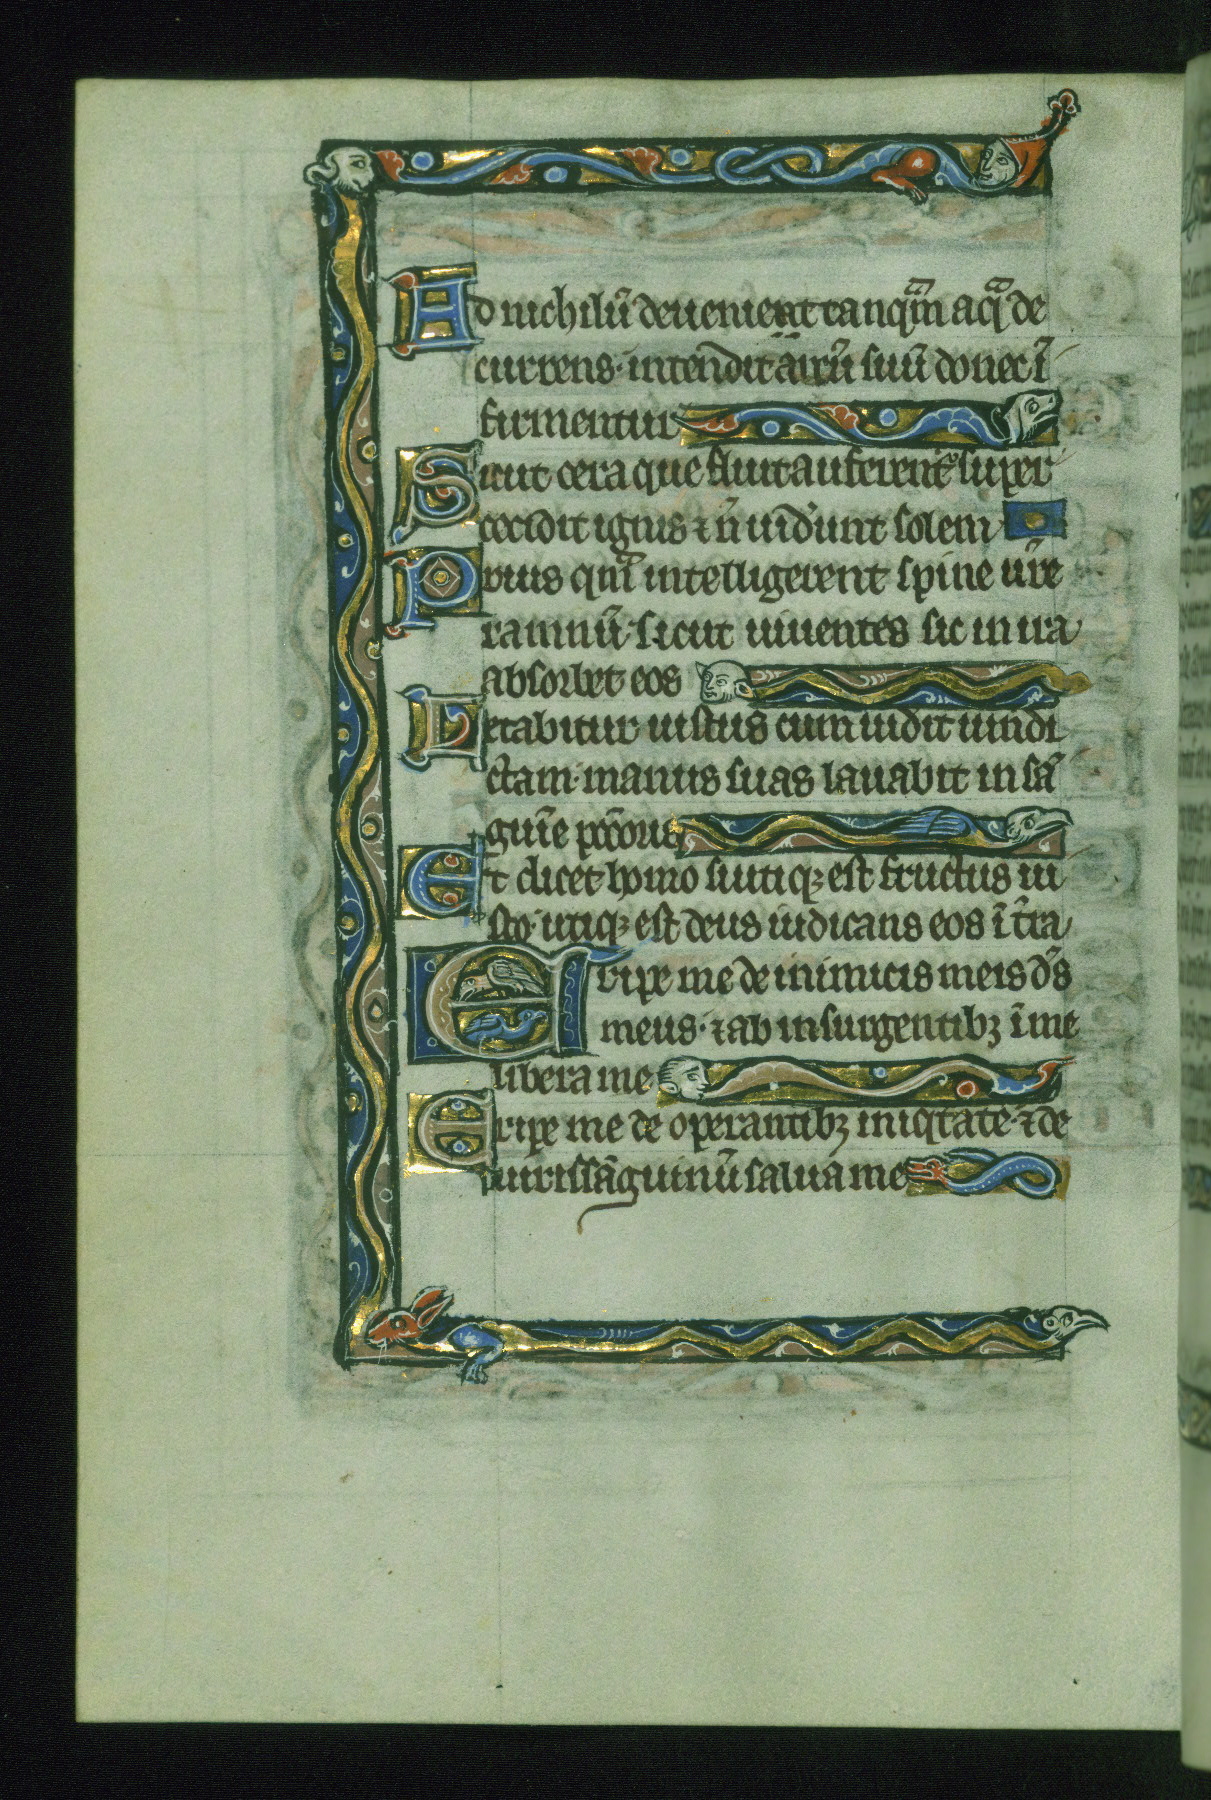 Ad nichilū deuenient tanq̄m aq̄ de
currens· intendit arcū suū donec ī
firmentur
Sicut cera que fluit auferent᷑ super
cecidit ignis ⁊ ñ uid'unt solem
Prius qm̄ intelligerent spine ur̄e
ramnū· sicut uiuentes sic in ira
absorbet eos
Letabitur iustus cum uidit uindi
ctam· manus suas lauabit in sā
guīe pccōris
Et dicet homo si utiqꝫ est fructus iu
sto· utiqꝫ est deus iudicans eos ī t̄ra
Eripe me de inimicis meis d̄s
meus· ⁊ ab insurgentibꝫ ī me
libera me
Eripe me de operantibꝫ iniqtate· ⁊ de
uiris sāguinū salua me